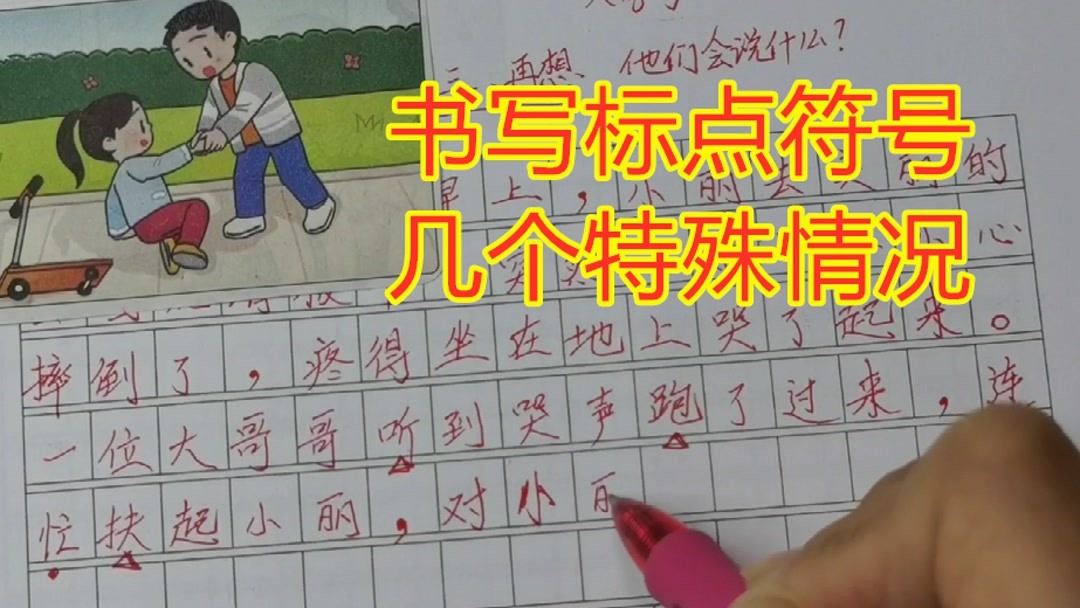 再想 他们会说什么？
书写标点符号
几个特殊情况
早上，小丽去
的
心
摔倒了，疼得坐在地上哭了起来。
一位大哥哥听到哭声跑了过来，连
忙扶起小丽，对小丽